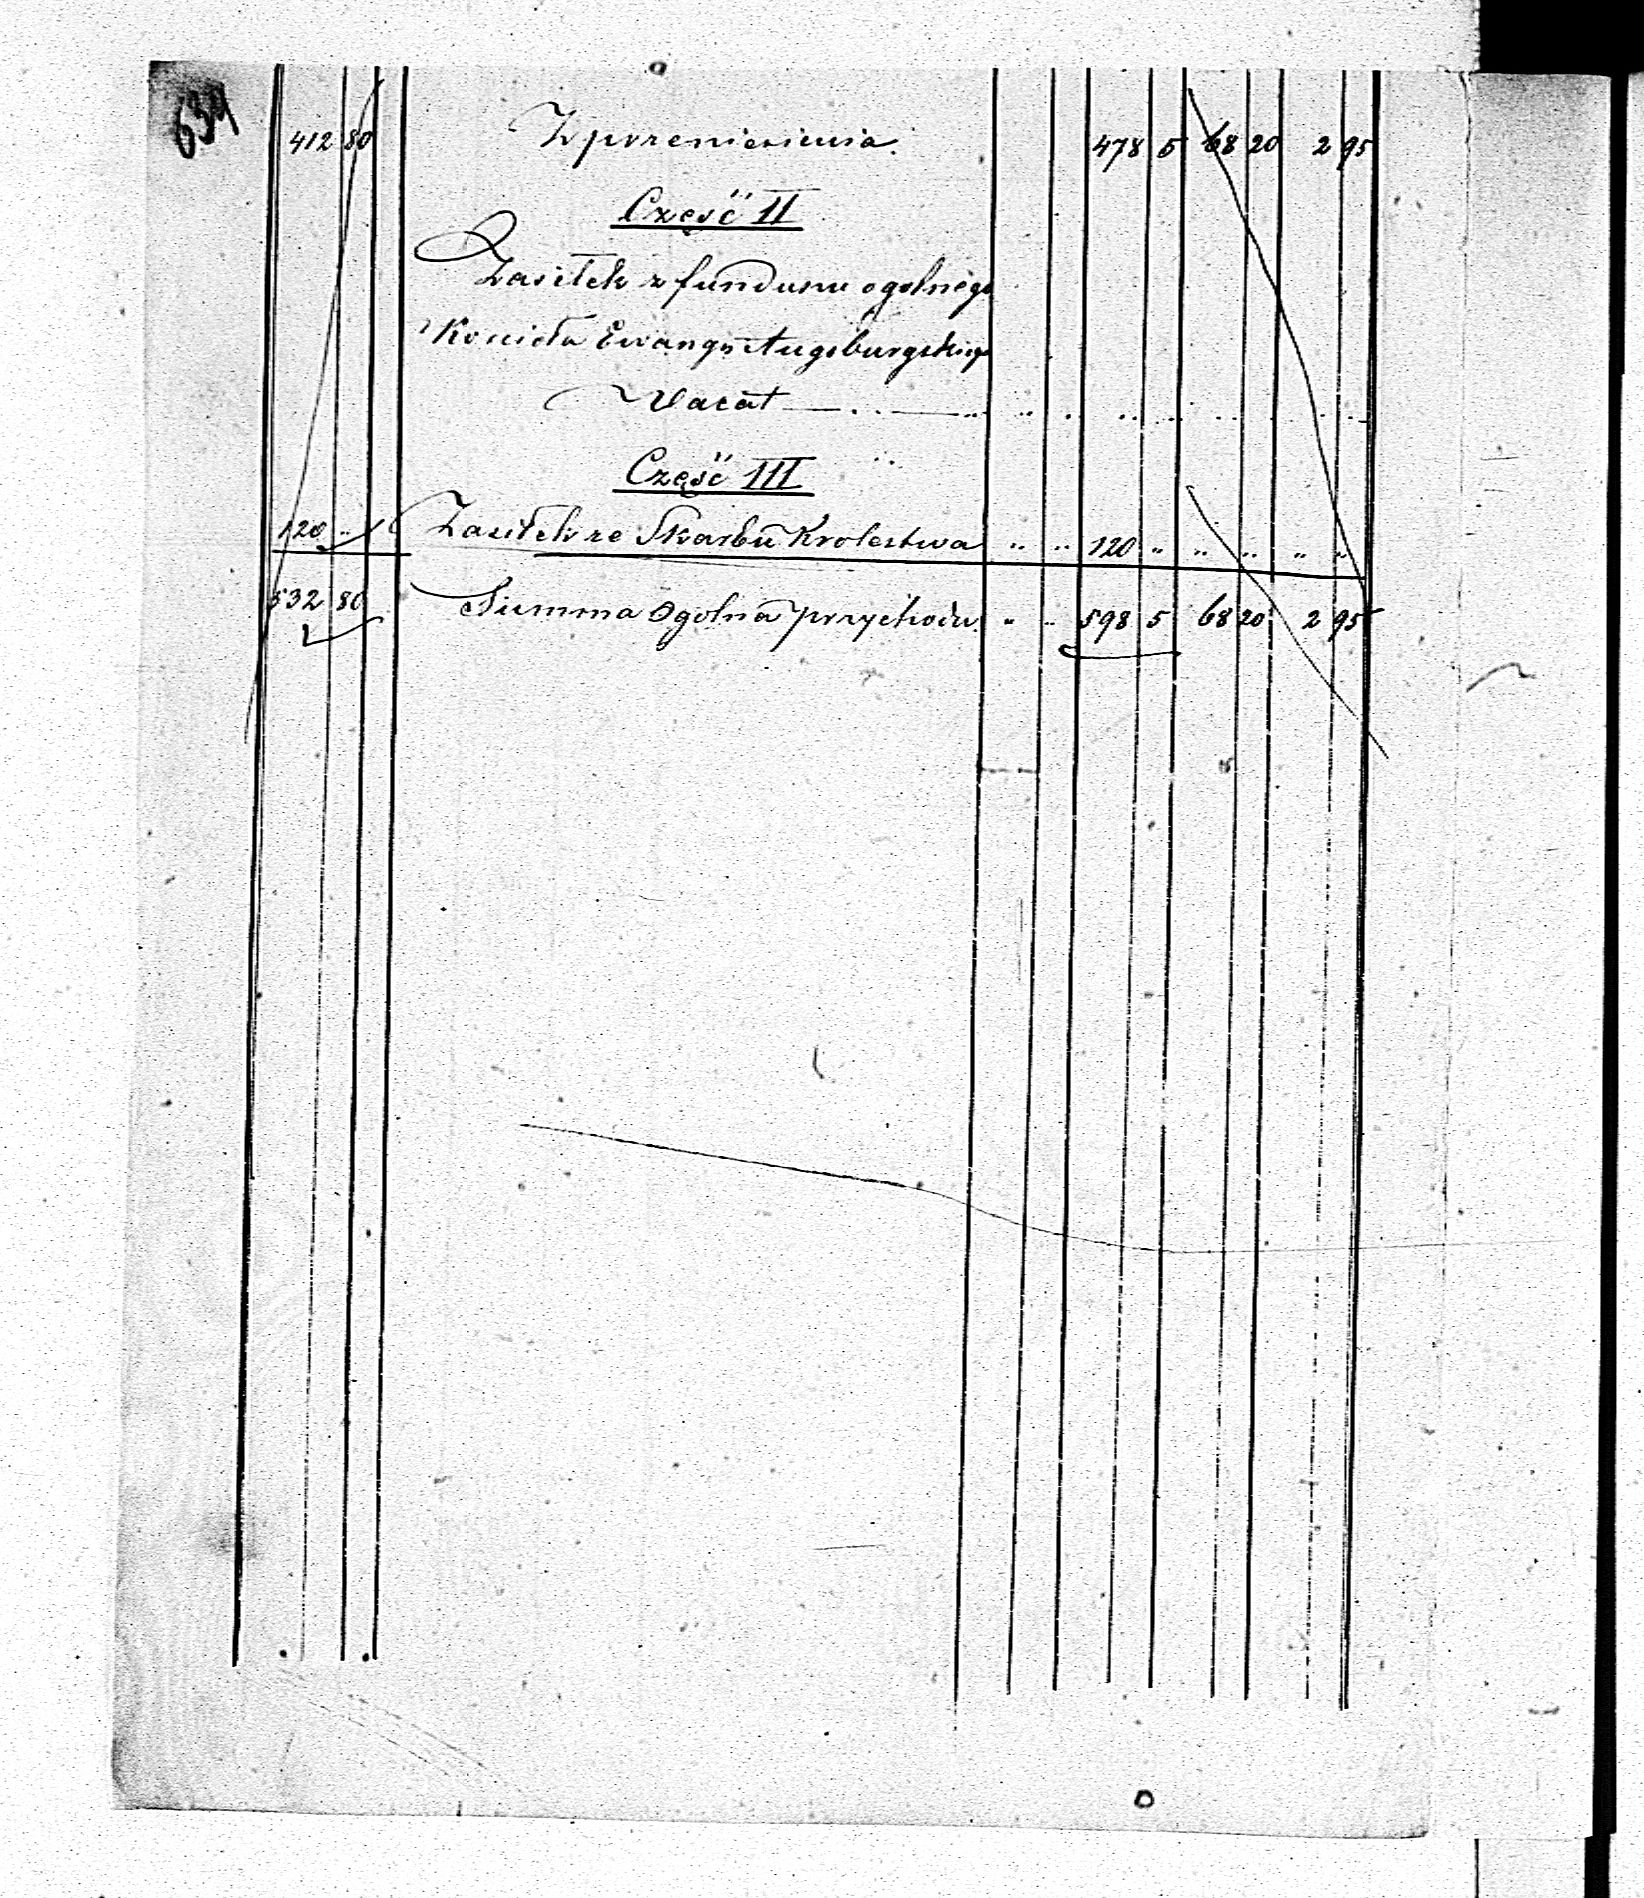 634
412 80 Z przeniesienia. 478 5 68 20 2 95
Część II
Zasiłek z funduszu ogolnego
Kościoła Ewang. Augsburgskiego
Vacat — .. — .. .. .. .. .. .. .. .. ..
Część III
120 .. Zasiłek ze Skarbu Krolestwa .. .. 120 .. .. .. .. ..
532 80 Summa Ogolna przychodu. .. .. 598 5 68 20 2 95